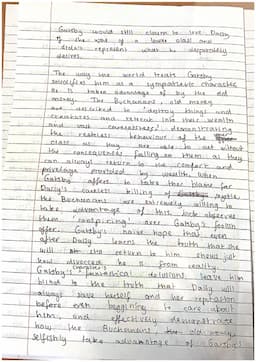 Gatsby would still claim to love Daisy
if she was of a lower class and
didn't represent what he desperately
desires.
The way the world treats Gatsby
solidifies him as a sympathetic character
He is taken advantage of by the old
money. The Buchanans, old money
are described to 'destroy things and
creatures and retreat into their wealth
and vast carelessness' demonstrating
the reckless behaviour of the
class as they are able to act without
the consequences falling on them as they
can always return to the comfort and
privilege provided by wealth. When
Gatsby offers to take the blame for
Daisy's careless killing of Myrtle
the Buchanans are extremely willing to
take advantage of this. Nick observes
them 'conspiring' over Gatsby's foolish
offer. Gatsby's naive hope that even
after Daisy learns the truth that she
will return to him shows just
how divorced he is from reality.
Gatsby's fanatical delusions leave him
blind to the truth that Daisy will
always save herself and her reputation
before even beginning to care about
him, and effectively demonstrates
how the Buchanans, the old money
selfishly take advantage of Gatsby's